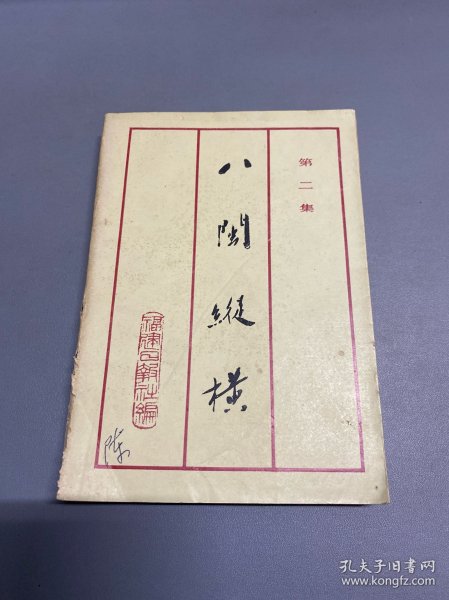 第二集
八闽縱横
福建日報社編
陈
孔夫子旧书网
www.kongfz.com